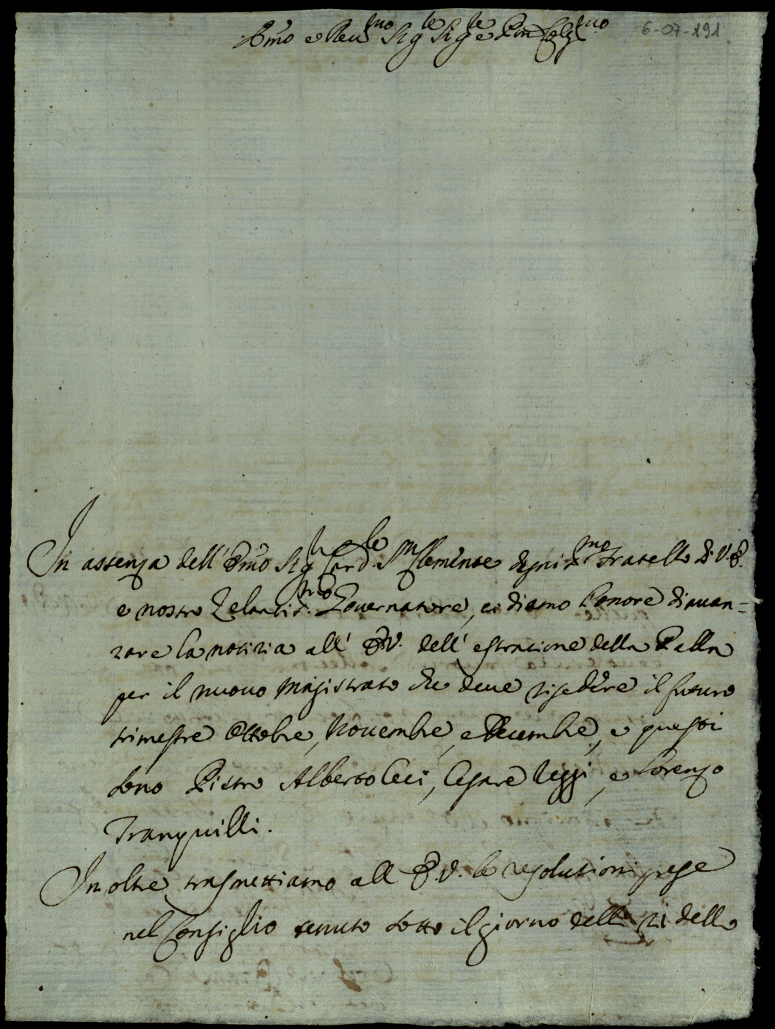 Emo e Reumo Sigle Sigle e Pron Colmo
6-07-191
In assenza dell' Emo Sigr Cardle Sn Clemente degnissmo Fratello di V. E.
e nostro Zelantismo Gouernatore, ci diamo l'onore di auan=
zare la notizia all' E.V. dell' estrazione della Palla
per il nuouo Magistrato che deue risedere il futuro
trimestre Ottobre, Nouembre, e Decembre, e questi
sono Pietro Alberto Ceci, Cesare Neggi, e Lorenzo
Tranquilli.
In oltre trasmettiamo all E.V. le resolutioni prese
nel Consiglio tenuto sotto il giorno delli 21 dello